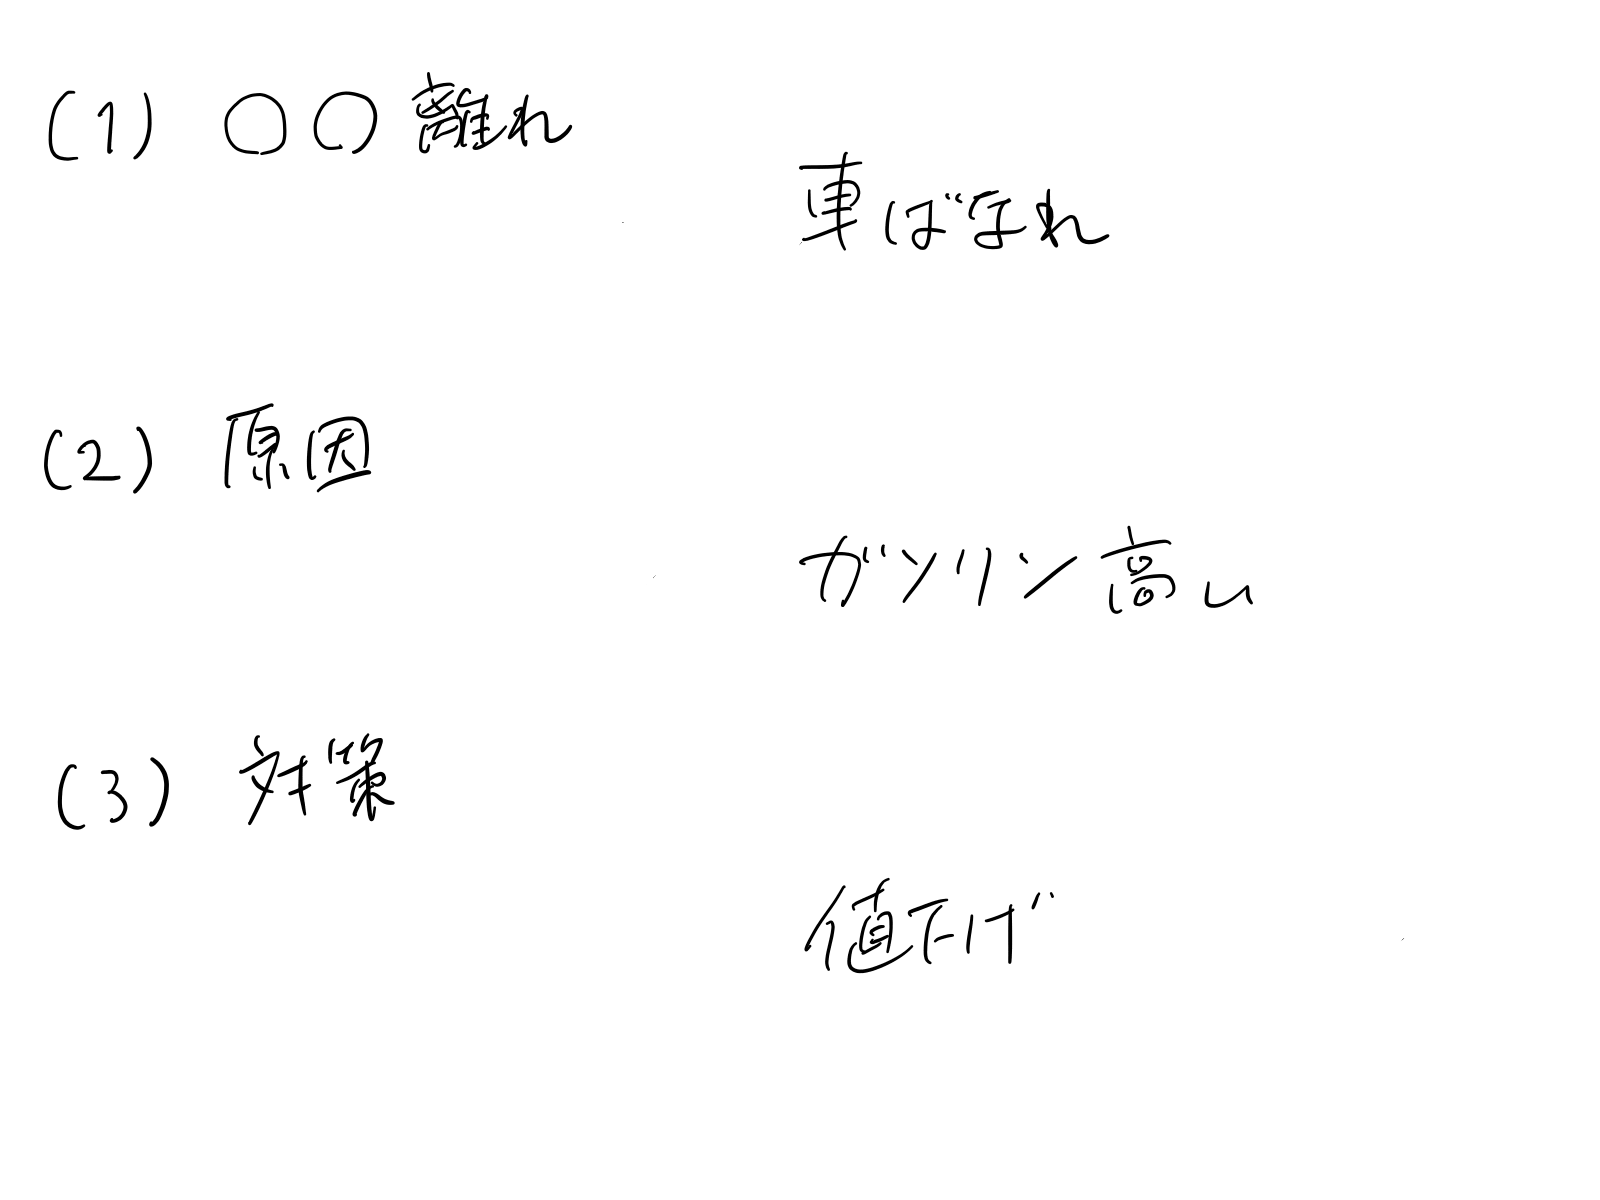 (1) 〇〇離れ
車ばなれ
(2) 原因
ガソリン高い
(3) 対策
値下げ